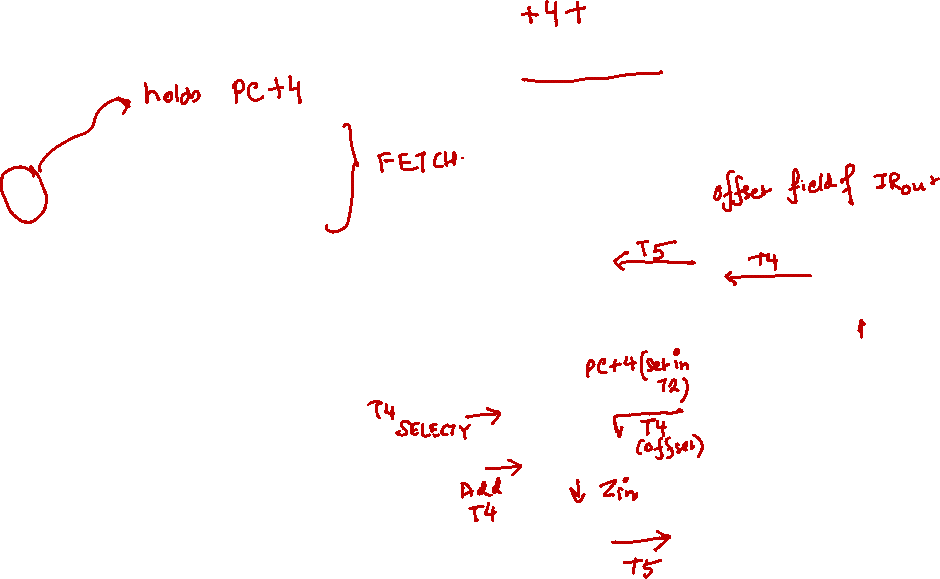 +4+
holds PC+4
FETCH.
offset field of IRout
T5
T4
PC+4 (set in
T2)
T4
SELECTY
T4
(offset)
Add
T4
Zin
T5